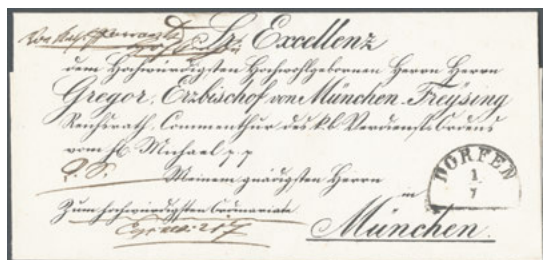 Sr. Excellenz
dem Hochwürdigsten Hochwohlgebornen Herrn Herrn
Gregor, Erzbischof von München-Freysing
Reichsrath, Commenthur des k. b. Verdienst Ordens
vom hl. Michael p. p.
Meinem gnädigsten Herrn
in
München.
Zum hochwürdigsten Ordinariate
DORFEN
1
7